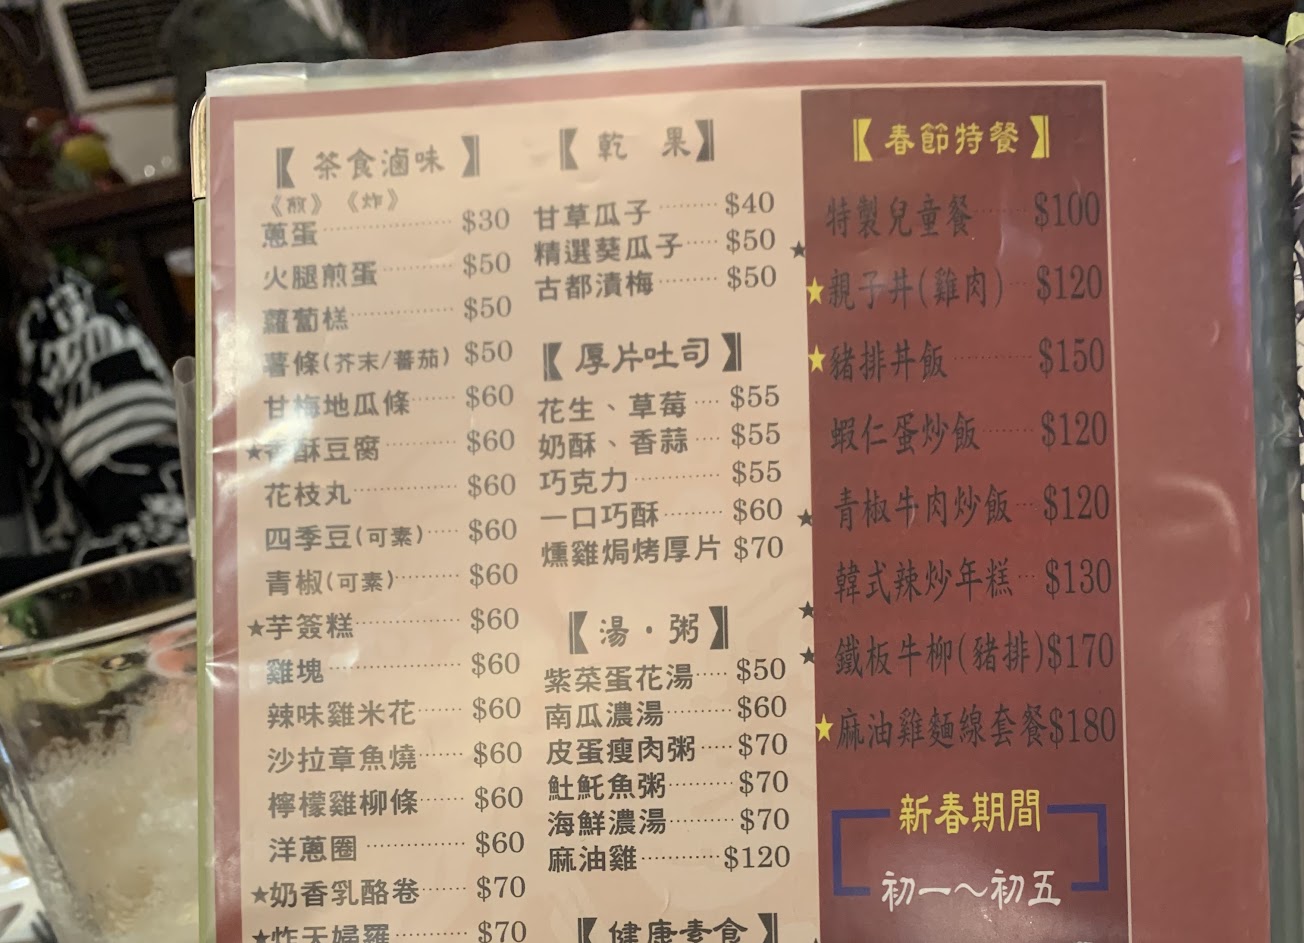 【茶食滷味】
《煎》《炸》
蔥蛋 $30
火腿煎蛋 $50
蘿蔔糕 $50
薯條(芥末/蕃茄) $50
甘梅地瓜條 $60
★香酥豆腐 $60
花枝丸 $60
四季豆(可素) $60
青椒(可素) $60
★芋簽糕 $60
雞塊 $60
辣味雞米花 $60
沙拉章魚燒 $60
檸檬雞柳條 $60
洋蔥圈 $60
★奶香乳酪卷 $70
★炸天婦羅 $70
【乾 果】
甘草瓜子 $40
精選葵瓜子 $50
古都漬梅 $50
【厚片吐司】
花生、草莓 $55
奶酥、香蒜 $55
巧克力 $55
一口巧酥 $60
燻雞焗烤厚片 $70
【湯・粥】
紫菜蛋花湯 $50
南瓜濃湯 $60
皮蛋瘦肉粥 $70
魠魠魚粥 $70
海鮮濃湯 $70
麻油雞 $120
【健康素食】
【春節特餐】
特製兒童餐 $100
★親子丼(雞肉) $120
★豬排丼飯 $150
蝦仁蛋炒飯 $120
青椒牛肉炒飯 $120
韓式辣炒年糕 $130
鐵板牛柳(豬排) $170
★麻油雞麵線套餐 $180
新春期間
初一～初五